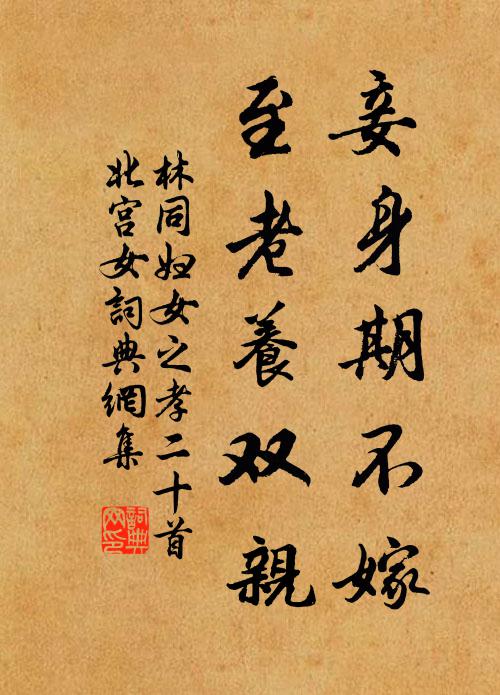 妾身期不嫁
至老養双親
林同妇女之孝二十首
北宫女詞典網集
詞典网印